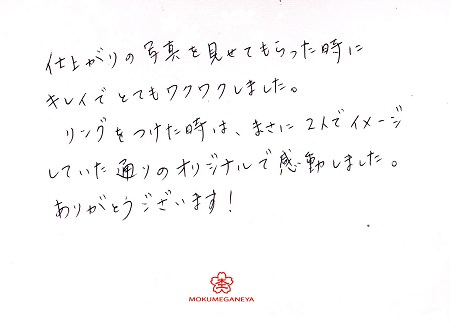 仕上がりの写真を見せてもらった時に
キレイでとてもワクワクしました。
リングをつけた時は、まさに2人でイメージ
していた通りのオリジナルで感動しました。
ありがとうございます!
MOKUMEGANEYA